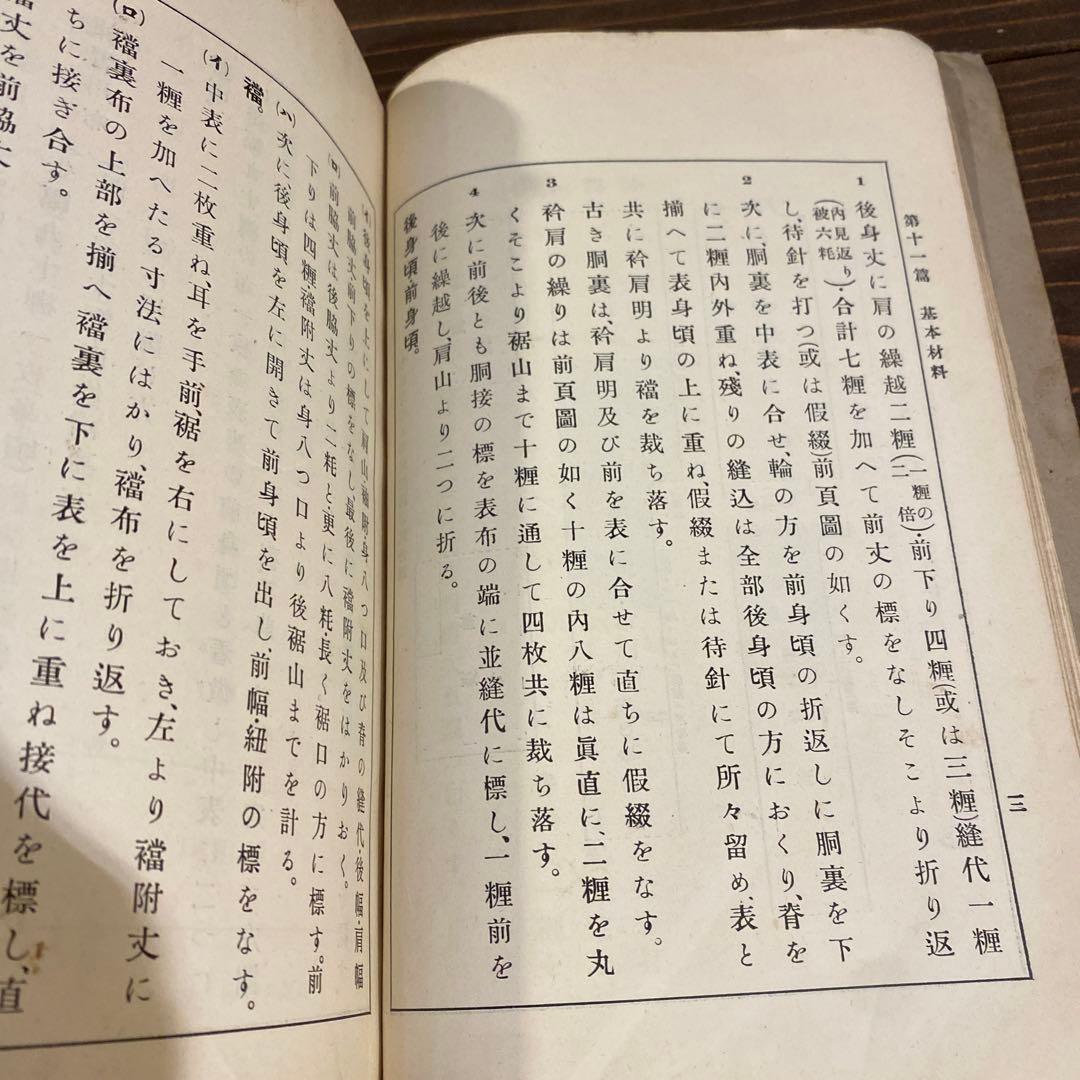 第十一篇　基本材料
三
1　後身丈に肩の繰越二糎(一糎の二倍)・前下り四糎(或は三糎)縫代一糎
(内見返り被六粍)・合計七糎を加へて前丈の標をなしそこより折り返
し、待針を打つ(或は假綴)前頁圖の如くす。
2　次に、胴裏を中表に合せ、輪の方を前身頃の折返しに胴裏を下
に二糎内外重ね、殘りの縫込は全部後身頃の方におくり、脊を
揃へて表身頃の上に重ね、假綴または待針にて所々留め、表と
共に衿肩明より襠を裁ち落す。
古き胴裏は、衿肩明及び前を表に合せて直ちに假綴をなす。
3　衿肩の繰りは前頁圖の如く十糎の内八糎は眞直に、二糎を丸
くそこより裾山まで十糎に通して四枚共に裁ち落す。
4　次に前後とも胴接の標を表布の端に並縫代に標し、一糎前を
後に繰越し、肩山より二つに折る。
後身頃前身頃。
(イ)後身頃を上にして肩山・袖附・身八つ口及び脊の縫代・後幅・肩幅
前脇丈前下りの標をなし、最後に襠附丈をはかりおく。
(ロ)前脇丈は後脇丈より二粍と更に八粍・長く裾口の方に標す。前
下りは四糎襠附丈は身八つ口より後裾山までを計る。
(ハ)次に、後身頃を左に開きて前身頃を出し、前幅・紐附の標をなす。
襠。
(イ)中表に二枚重ね、耳を手前、裾を右にしておき、左より襠附丈に
一糎を加へたる寸法にはかり、襠布を折り返す。
(ロ)襠裏布の上部を揃へ襠裏を下に表を上に重ね接代を標し、直
ちに接ぎ合す。
丈を前脇